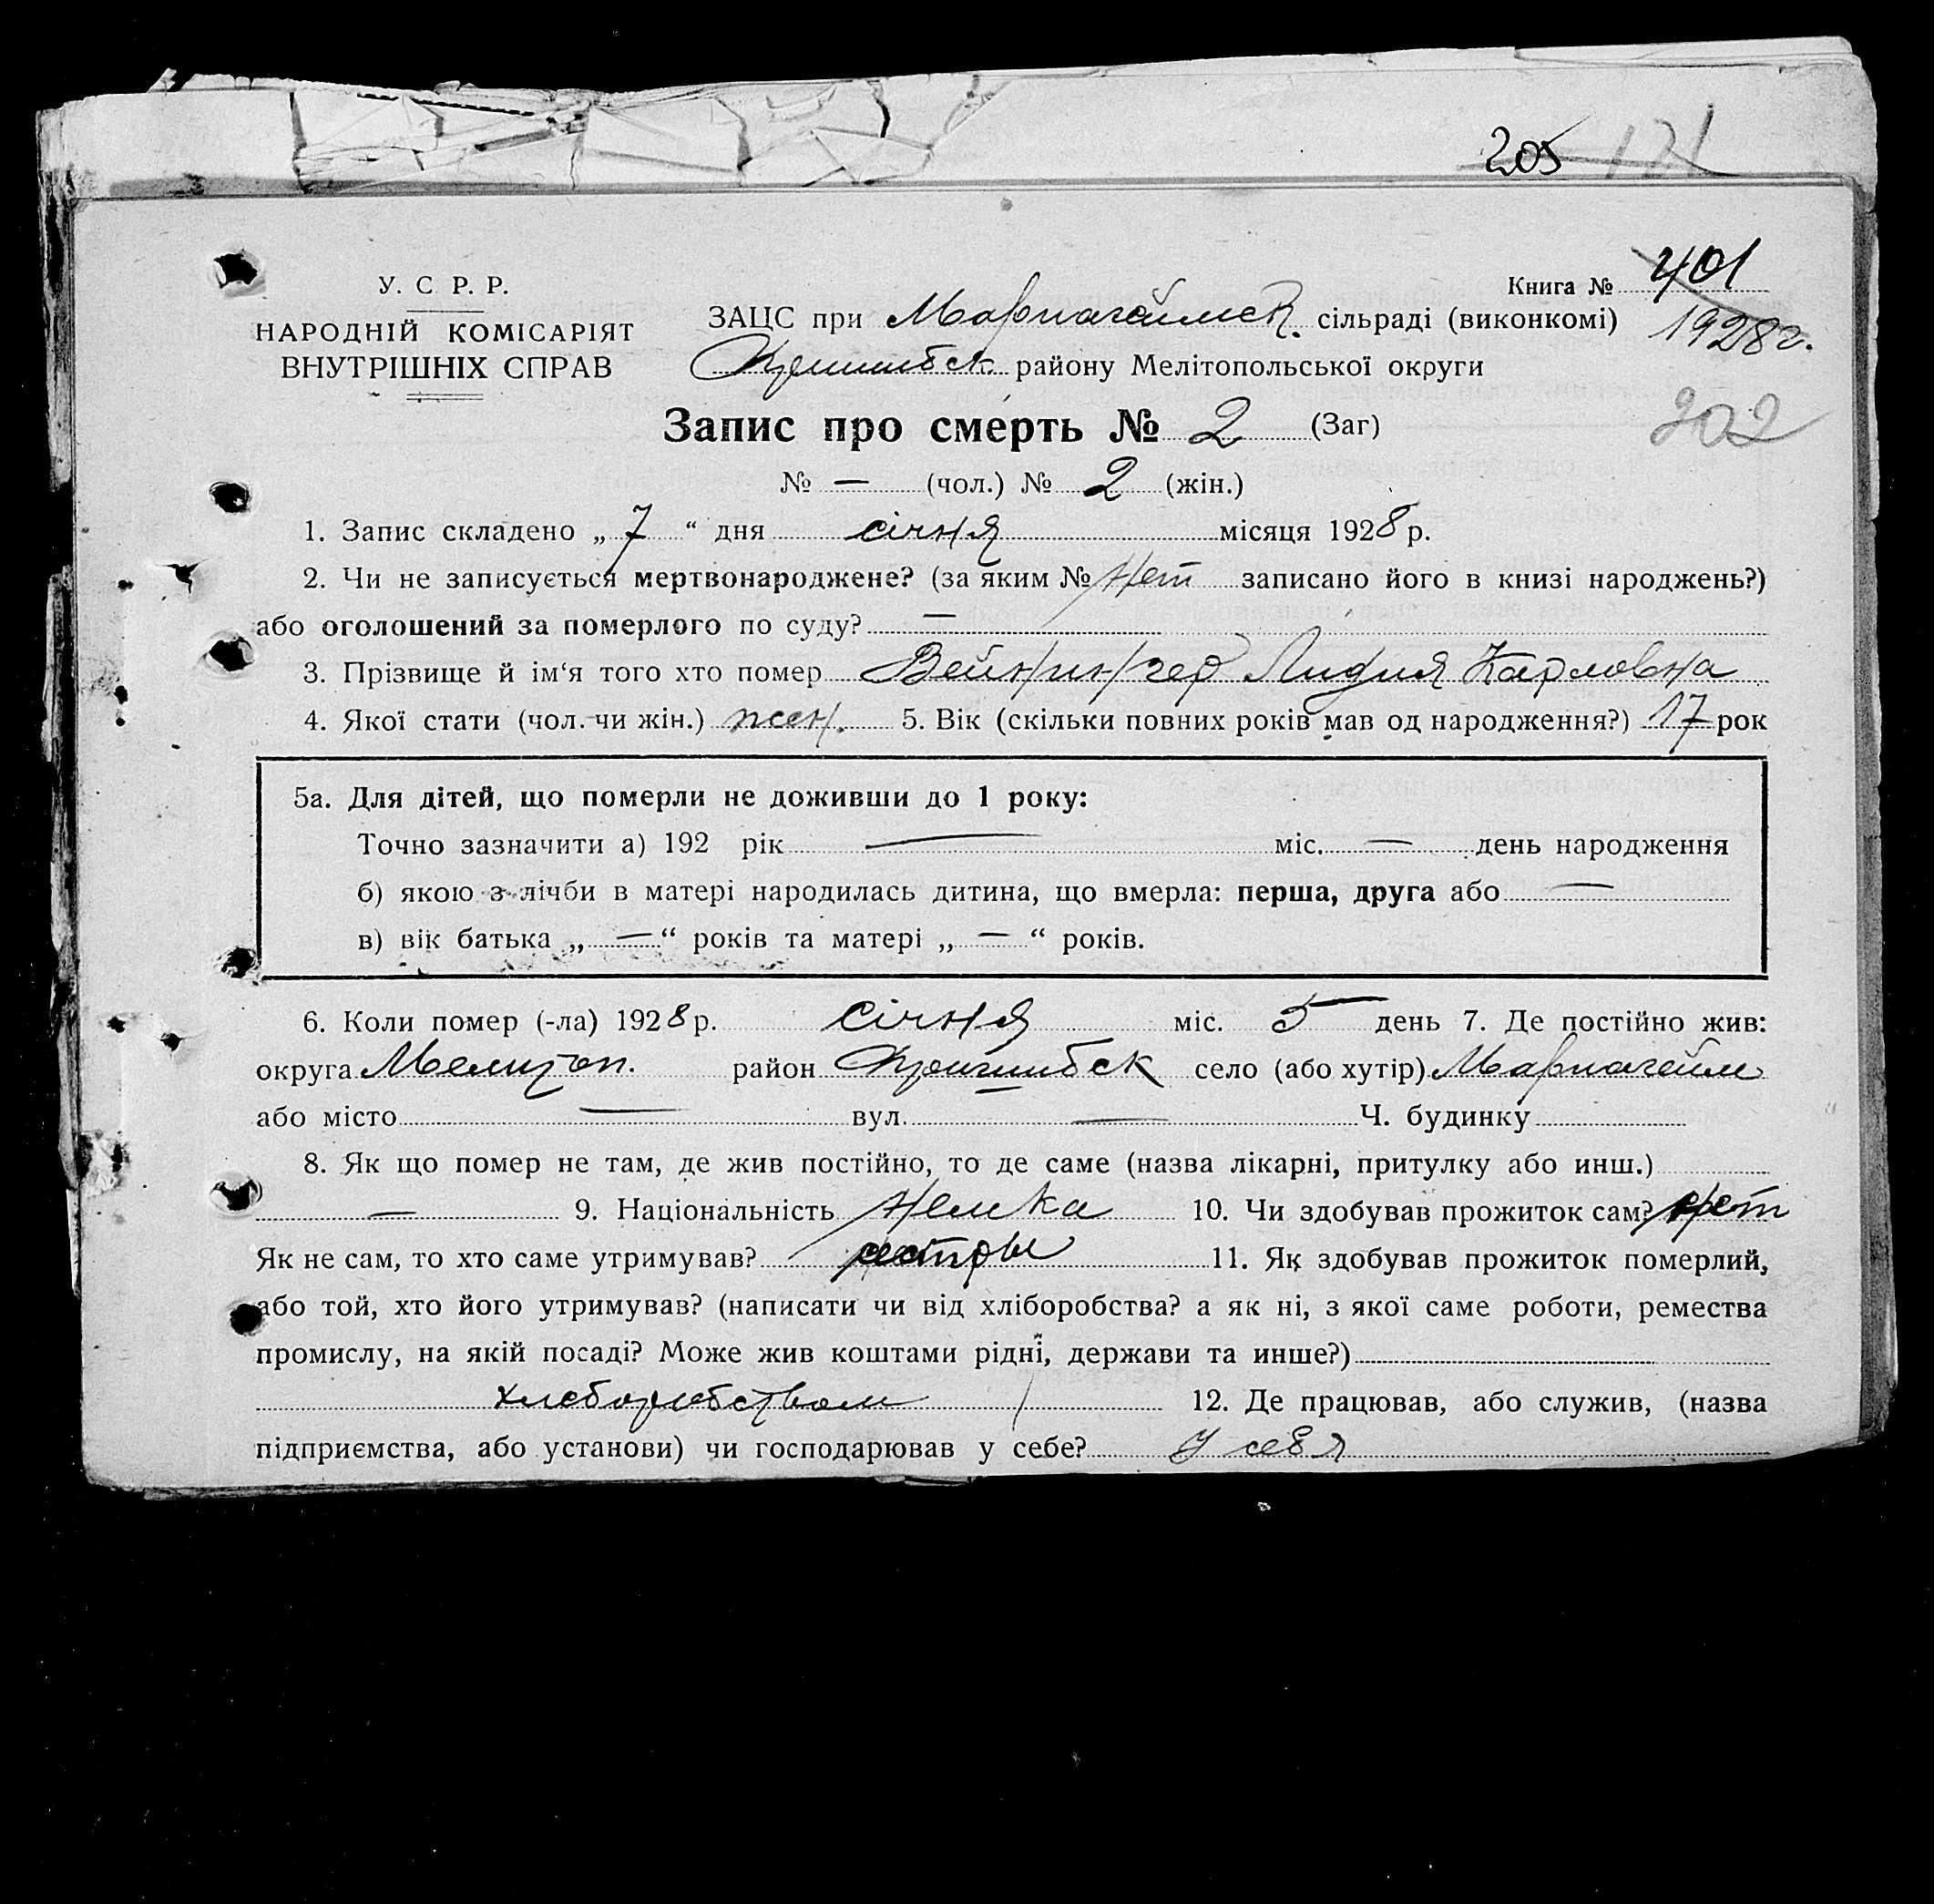 205 121
У. С. Р. Р.
НАРОДНІЙ КОМІСАРІЯТ
ВНУТРІШНІХ СПРАВ
Книга № 401
1928 г.
ЗАЦС при Мариагеймск. сільраді (виконкомі)
Пришибск. району Мелітопольської округи
202
Запис про смерть № 2 (Заг)
№ — (чол.) № 2 (жін.)
1. Запис складено „ 7 “ дня січня місяця 1928 р.
2. Чи не записується мертвонароджене? (за яким № Нет записано його в книзі народжень?)
або оголошений за померлого по суду? —
3. Прізвище й ім‘я того хто помер Вейнингер Лидия Карловна
4. Якої стати (чол. чи жін.) жен. 5. Вік (скільки повних років мав од народження?) 17 рок
5а. Для дітей, що померли не доживши до 1 року:
Точно зазначити а) 192 рік — міс. — день народження
б) якою з лічби в матері народилась дитина, що вмерла: перша, друга або —
в) вік батька „ — “ років та матері „ — “ років.
6. Коли помер (-ла) 1928 р. січня міс. 5 день 7. Де постійно жив:
округа Мелитоп. район Пришибск село (або хутір) Мариагейм
або місто — вул. — Ч. будинку
8. Як що помер не там, де жив постійно, то де саме (назва лікарні, притулку або инш.)
— 9. Національність Немка 10. Чи здобував прожиток сам? Нет
Як не сам, то хто саме утримував? сестры 11. Як здобував прожиток померлий,
або той, хто його утримував? (написати чи від хліборобства? а як ні, з якої саме роботи, ремества
промислу, на якій посаді? Може жив коштами рідні, держави та инше?)
хлеборобством 12. Де працював, або служив, (назва
підприємства, або установи) чи господарював у себе? У себя